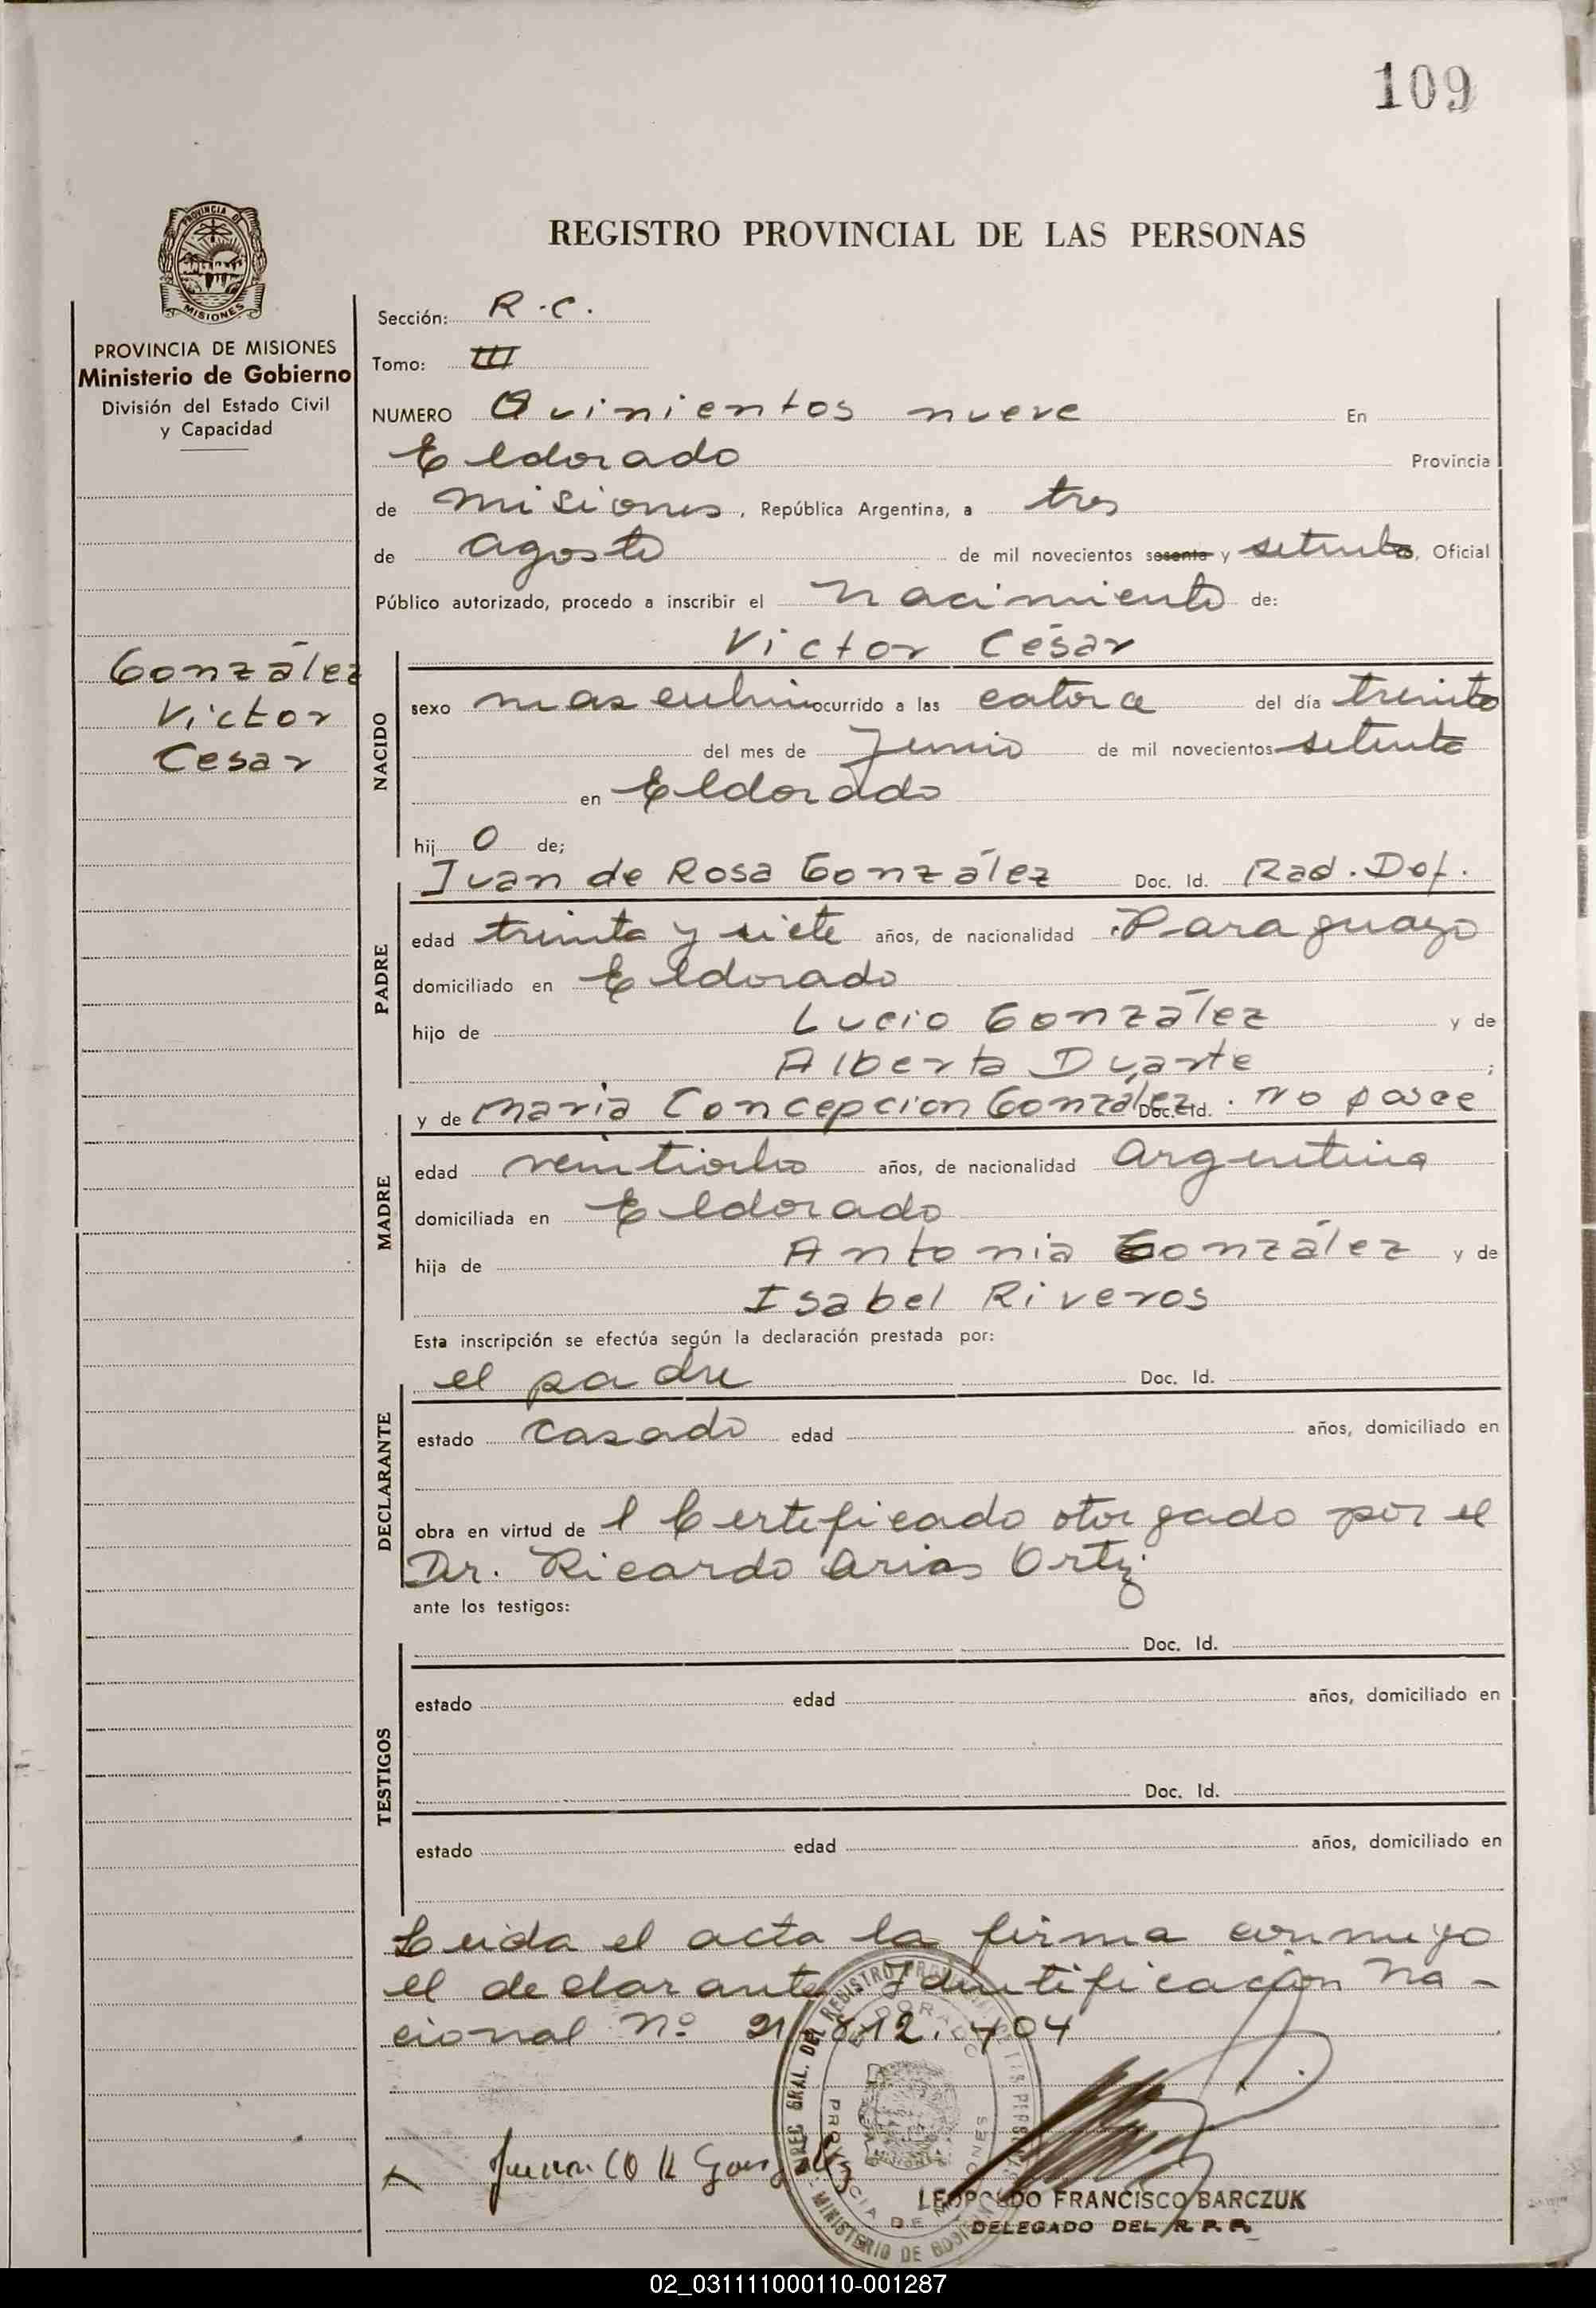 109
REGISTRO PROVINCIAL DE LAS PERSONAS
PROVINCIA DE
MISIONES
PROVINCIA DE MISIONES
Ministerio de Gobierno
División del Estado Civil
y Capacidad
González
Victor
Cesar
Sección: R.C.
Tomo: III
NUMERO Quinientos nueve En
Eldorado Provincia
de Misiones, República Argentina, a tres
de agosto de mil novecientos sesenta y setenta, Oficial
Público autorizado, procedo a inscribir el nacimiento de:
Victor César
NACIDO
sexo masculino ocurrido a las catorce del día treinta
del mes de Junio de mil novecientos setenta
en Eldorado
hij o de;
Juan de Rosa González Doc. Id. Rad. Def.
PADRE
edad treinta y siete años, de nacionalidad Paraguayo
domiciliado en Eldorado
hijo de Lucio González y de
Alberta Duarte ;
y de Maria Concepcion González Doc. Id. No posee
MADRE
edad veintiocho años, de nacionalidad Argentina
domiciliada en Eldorado
hija de Antonia González y de
Isabel Riveros
Esta inscripción se efectúa según la declaración prestada por:
el padre Doc. Id.
DECLARANTE
estado casado edad años, domiciliado en
obra en virtud de l Certificado otorgado por el
Dr. Ricardo Arias Ortiz
ante los testigos:
Doc. Id.
TESTIGOS
estado edad años, domiciliado en
Doc. Id.
estado edad años, domiciliado en
Leida el acta la firma conmigo
el declarante Identificación Na-
cional Nº 404
LEOPOLDO FRANCISCO BARCZUK
DELEGADO DEL R. P. P.
02_031111000110-001287